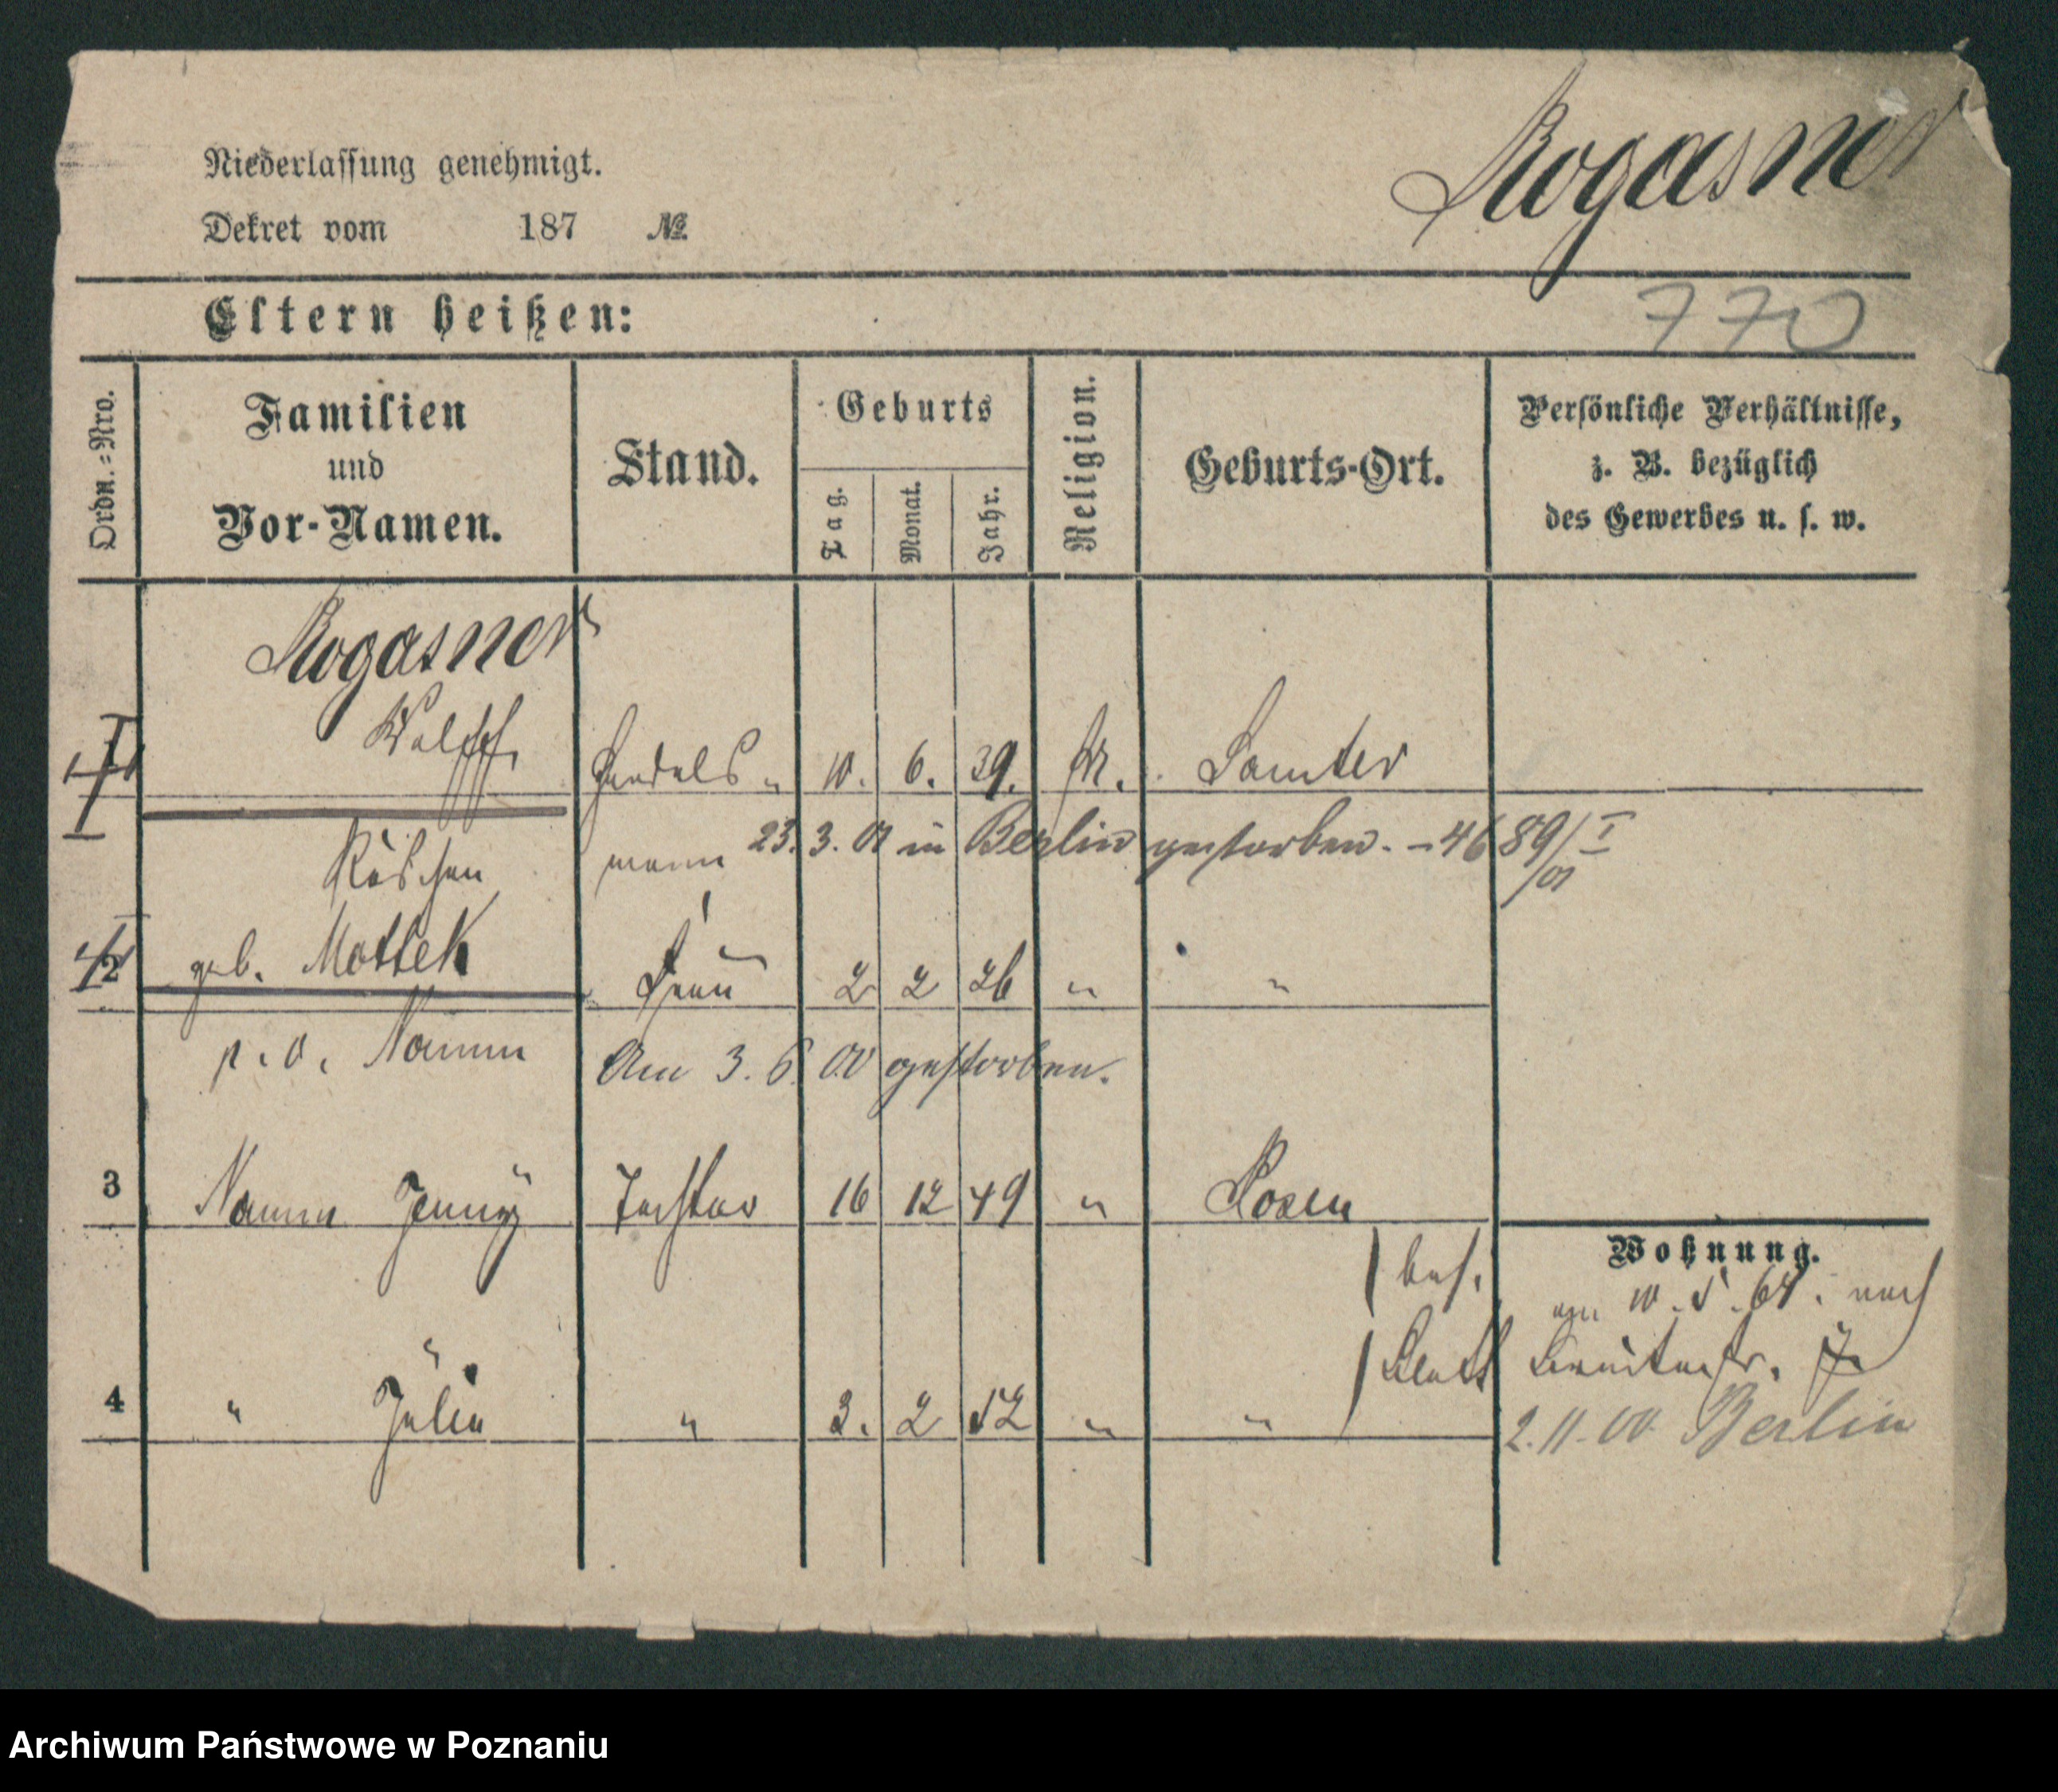 Rogasner
Niederlassung genehmigt.
Dekret vom 187 №
Eltern heißen:
770
Ordn.=Nro.
Familien
und
Vor-Namen.
Stand.
Geburts
Tag.
Monat.
Jahr.
Religion.
Geburts-Ort.
Persönliche Verhältnisse,
z. B. bezüglich
des Gewerbes u. s. w.
Rogasner
Wolff Handels- 10. 6. 39. M. Samter
mann 23. 3. 01 in Berlin gestorben. - 4689/I
/01
Röschen
2 geb. Mottek Frau 2 2 26 " "
Namm Am 3. 6. 00 gestorben.
3 Namm Jenny Tochter 16 12 49 " Posen
bes.
Blatt
Wohnung.
am 10. 5. 64. nach
2.11.00. Berlin
4 " Julie " 3. 2 52 " "
Archiwum Państwowe w Poznaniu